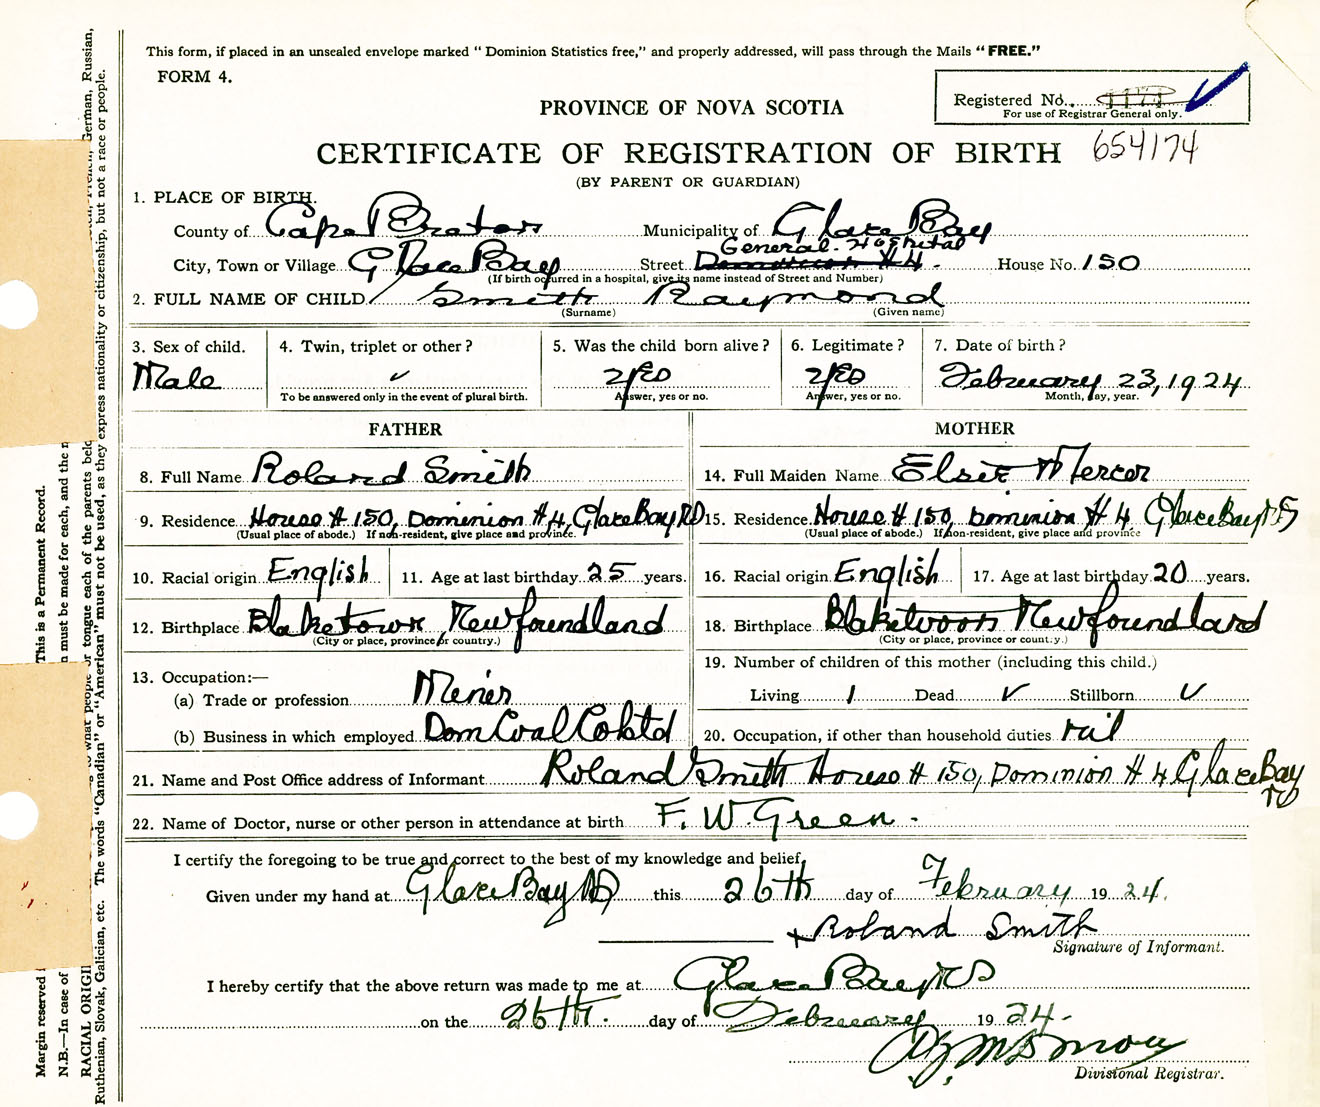 This form, if placed in an unsealed envelope marked "Dominion Statistics free," and properly addressed, will pass through the Mails "FREE."
FORM 4.
Registered No.
For use of Registrar General only.
PROVINCE OF NOVA SCOTIA
CERTIFICATE OF REGISTRATION OF BIRTH 654174
(BY PARENT OR GUARDIAN)
1. PLACE OF BIRTH.
County of Cape Breton Municipality of Glace Bay
General Hospital
City, Town or Village Glace Bay Street Dominion #4. House No. 150
(If birth occurred in a hospital, give its name instead of Street and Number)
2. FULL NAME OF CHILD Smith Raymond
(Surname) (Given name)
3. Sex of child. 4. Twin, triplet or other? 5. Was the child born alive? 6. Legitimate? 7. Date of birth?
Male ✓ Yes Yes February 23, 1924
To be answered only in the event of plural birth. Answer, yes or no. Answer, yes or no. Month, day, year.
FATHER MOTHER
8. Full Name Roland Smith 14. Full Maiden Name Elsie Mercer
9. Residence House # 150, Dominion #4, Glace Bay NS 15. Residence House # 150, Dominion # 4 Glace Bay N.S
(Usual place of abode.) If non-resident, give place and province. (Usual place of abode.) If non-resident, give place and province
10. Racial origin English 11. Age at last birthday 25 years. 16. Racial origin English 17. Age at last birthday 20 years.
12. Birthplace Blaketown, Newfoundland 18. Birthplace Blaketown Newfoundland
(City or place, province or country.) (City or place, province or country.)
13. Occupation:— 19. Number of children of this mother (including this child.)
(a) Trade or profession Miner Living 1 Dead ✓ Stillborn ✓
(b) Business in which employed Dom Coal Co Ltd 20. Occupation, if other than household duties
21. Name and Post Office address of Informant Roland Smith House # 150, Dominion # 4 Glace Bay
NS
22. Name of Doctor, nurse or other person in attendance at birth F. W. Green.
I certify the foregoing to be true and correct to the best of my knowledge and belief,
Given under my hand at Glace Bay NS this 26th day of February 19 24.
+ Roland Smith
Signature of Informant.
I hereby certify that the above return was made to me at Glace Bay NS
on the 26th. day of February 19 24.
Divisional Registrar.
Margin reserved This is a Permanent Record.
N.B.—In case of n must be made for each, and the
RACIAL ORIGI to what people or tongue each of the parents belo German, Russian,
Ruthenian, Slovak, Galician, etc. The words "Canadian" or "American" must not be used, as they express nationality or citizenship, but not a race or people.